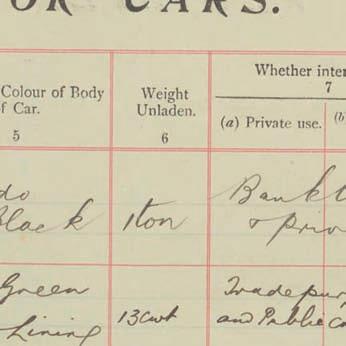 OR CARS.
Colour of Body
f Car.
5
Weight
Unladen.
6
Whether inter
7
(a) Private use.
(b
do
Black
1 ton
Bank
& priv
Green
Lining
13 cwt
Trade pur
and Public Co